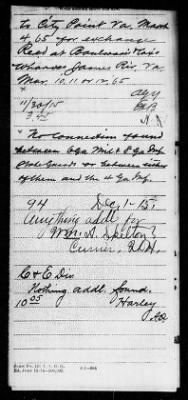 to City Point Va. March
4, 65 for exchange
Recd at Boulwares & Cox's
Wharves James Riv. Va
Mar. 10, 11 or 12, 65
11/30/15
3.45
* No connection found
between 6 Ga Mil & 8 Ga Inf
State Guards or between either
of them and the 4 Ga Inf.
94 Dec. 1-15.
Anything addtl for
Wm. A. Skelton?
Currier, R.D.H.
C & E Div
Nothing addtl found.
10 05 Harley